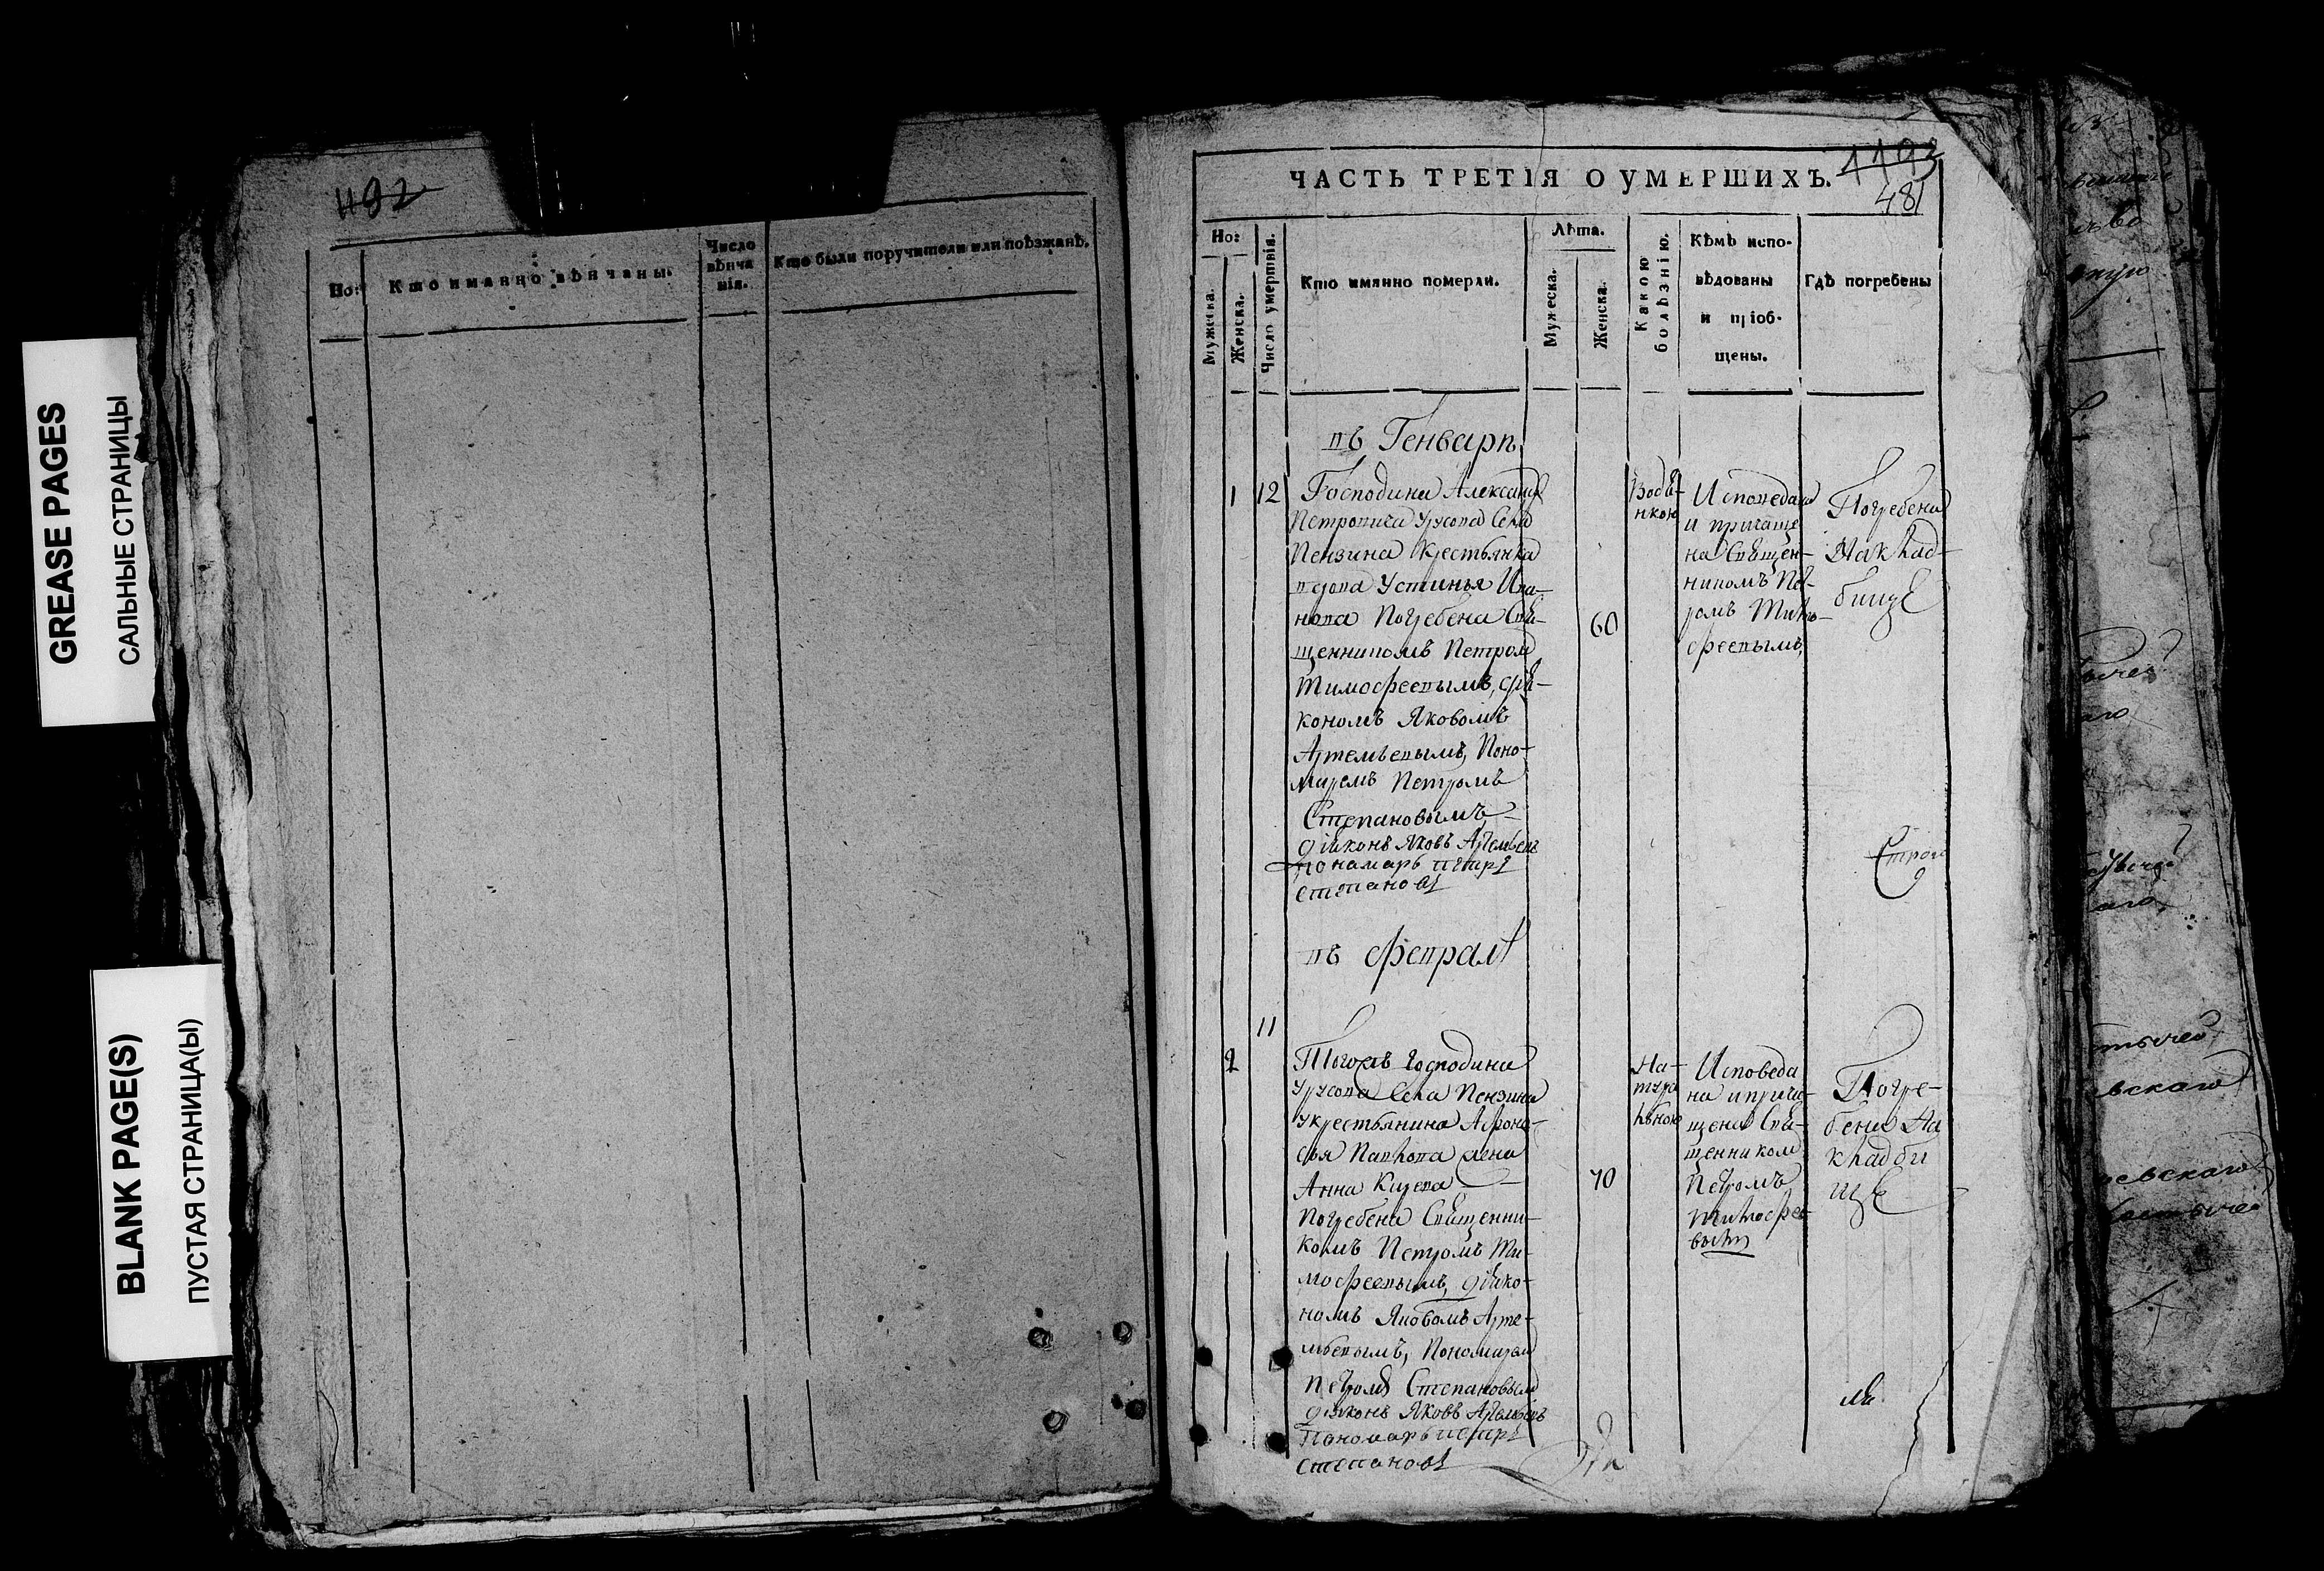 GREASE PAGES
САЛЬНЫЕ СТРАНИЦЫ
BLANK PAGE(S)
ПУСТАЯ СТРАНИЦА(Ы)
1192
Но:
Кто иманно вѣнчаны.
Число
вѣнча
нія.
Кто были поручители или поѣзжанѣ.
ЧАСТЬ ТРЕТІЯ О УМЕРШИХЪ.
1193
481
Но:
Мужеска.
Женска.
Число умертвія.
Кто имянно померли.
Лѣта.
Мужеска.
Женска.
Какою
болѣзнію.
Кѣмъ испо-
вѣдованы
и пріоб-
щены.
Гдѣ погребены
въ Генварѣ
1
12
Господина Александ
Петровича Урусова Села
Пензина Крестьянка
вдова Устинья Ива-
нова Погребена Свя-
щенникомъ Петром
Тимофеевымъ, діа-
кономъ Яковомъ
Артемьевымъ, Поно-
маремъ Петромъ
Степановымъ
діаконъ Яковъ Артемьевъ
пономарь петръ
степановъ
60
Водя-
нкою
Исповедана
и причаще
на Священ-
никомъ Пет-
ромъ Тимо-
феевымъ
Погребена
На клад-
бище
въ Феврале
2
11
Тогожъ господина
Урусова Села Пензина
у крестьянина Афона-
сья Павлова жена
Анна Карева
Погребена Священни-
комъ Петромъ Ти-
мофеевымъ, діако-
номъ Яковомъ Арте-
мьевымъ, Пономарем
Петромъ Степановым
діаконъ Яковъ Артемьевъ
пономарь петръ
степановъ
70
На-
тура
льною
Исповеда
на и прича-
щена Свя-
щенником
Петромъ
Тимофее-
вымъ
Погре-
бена На
кладби
ще